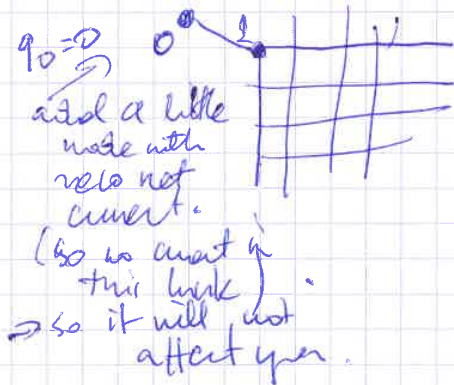 q₀=0
0
1
add a little
node with
zero net
current.
(so no current in
this link)
⇒ so it will not
affect you.